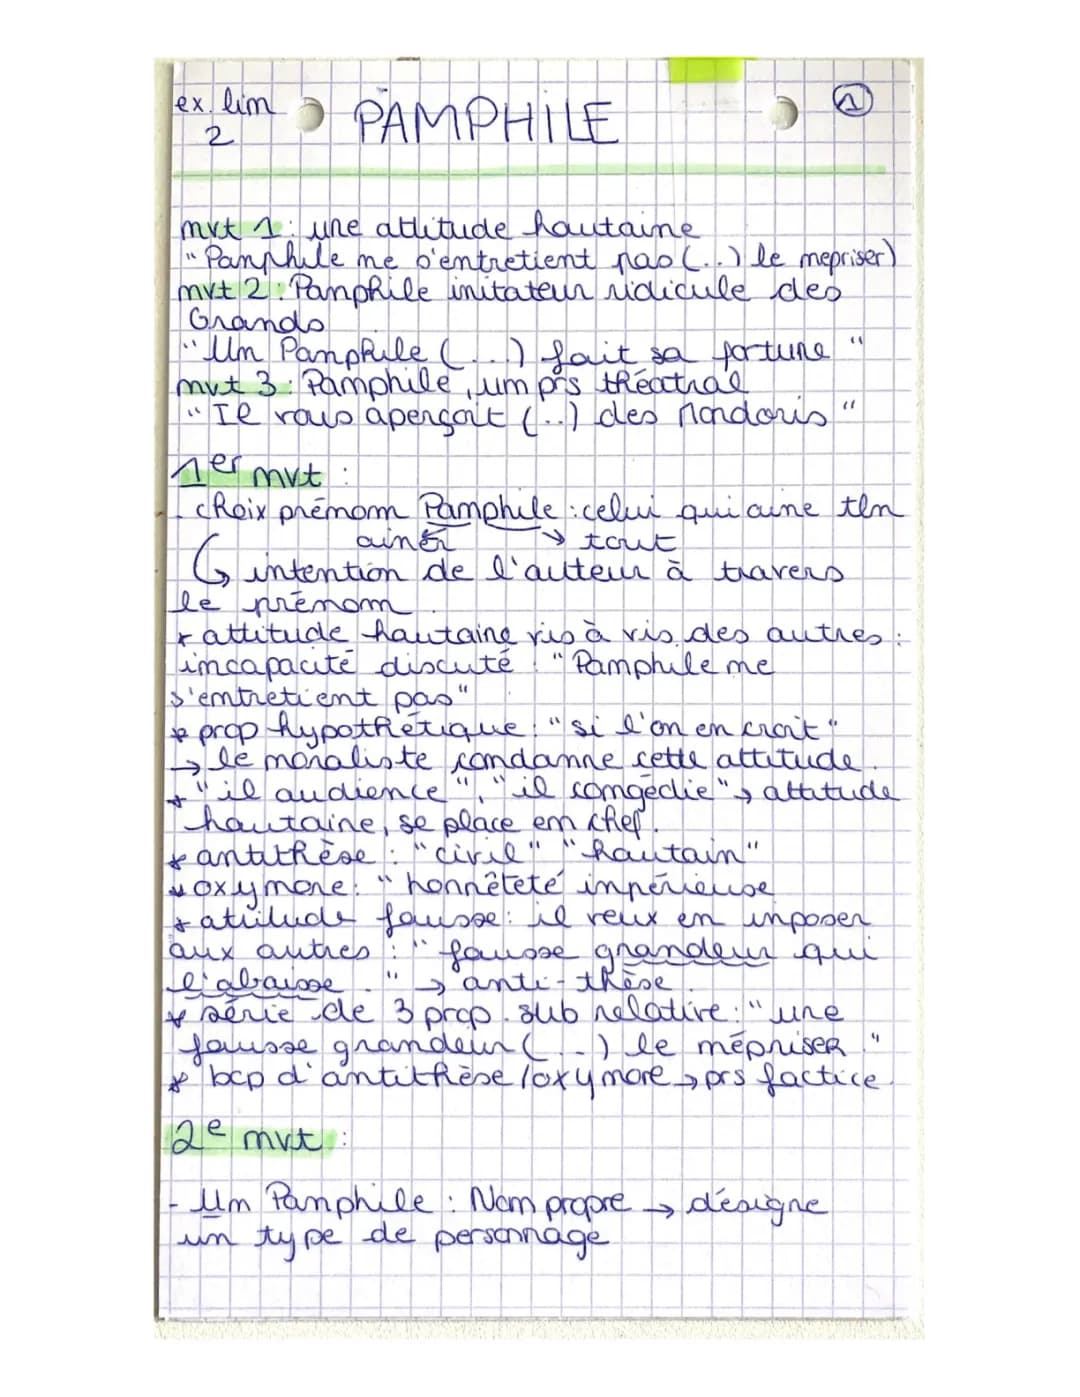 ex. lim
2
PAMPHILE
1
mvt 1 : une attitude hautaine
"Pamphile ne s'entretient pas (...) le mepriser)
mvt 2 : Pamphile imitateur ridicule des
Grands
"Un Pamphile (...) fait sa fortune"
mvt 3 : Pamphile, un prs théatral
"Il vous aperçoit (...) des Mondoris"
1er mvt :
. choix prénom Pamphile : celui qui aime tlm
aimer → tout
↳ intention de l'auteur à travers
le prénom.
* attitude hautaine vis à vis des autres :
incapacité discuté : "Pamphile ne
s'entretient pas"
* prop hypothétique : "si l'on en croit"
→ le moraliste condamne cette attitude.
* "il audience", "il congédie" → attitude
hautaine, se place en chef.
* antithèse : "civil" "hautain"
* oxymore : "honnêteté impérieuse
* attitude fausse : il veux en imposer
aux autres : "fausse grandeur qui
l'abaisse." → anti-thèse.
* série de 3 prop. sub relative : "une
fausse grandeur (...) le mépriser."
* bcp d'antithèse/oxymore → prs factice.
2e mvt :
- Un Pamphile : Nom propre → désigne
un type de personnage